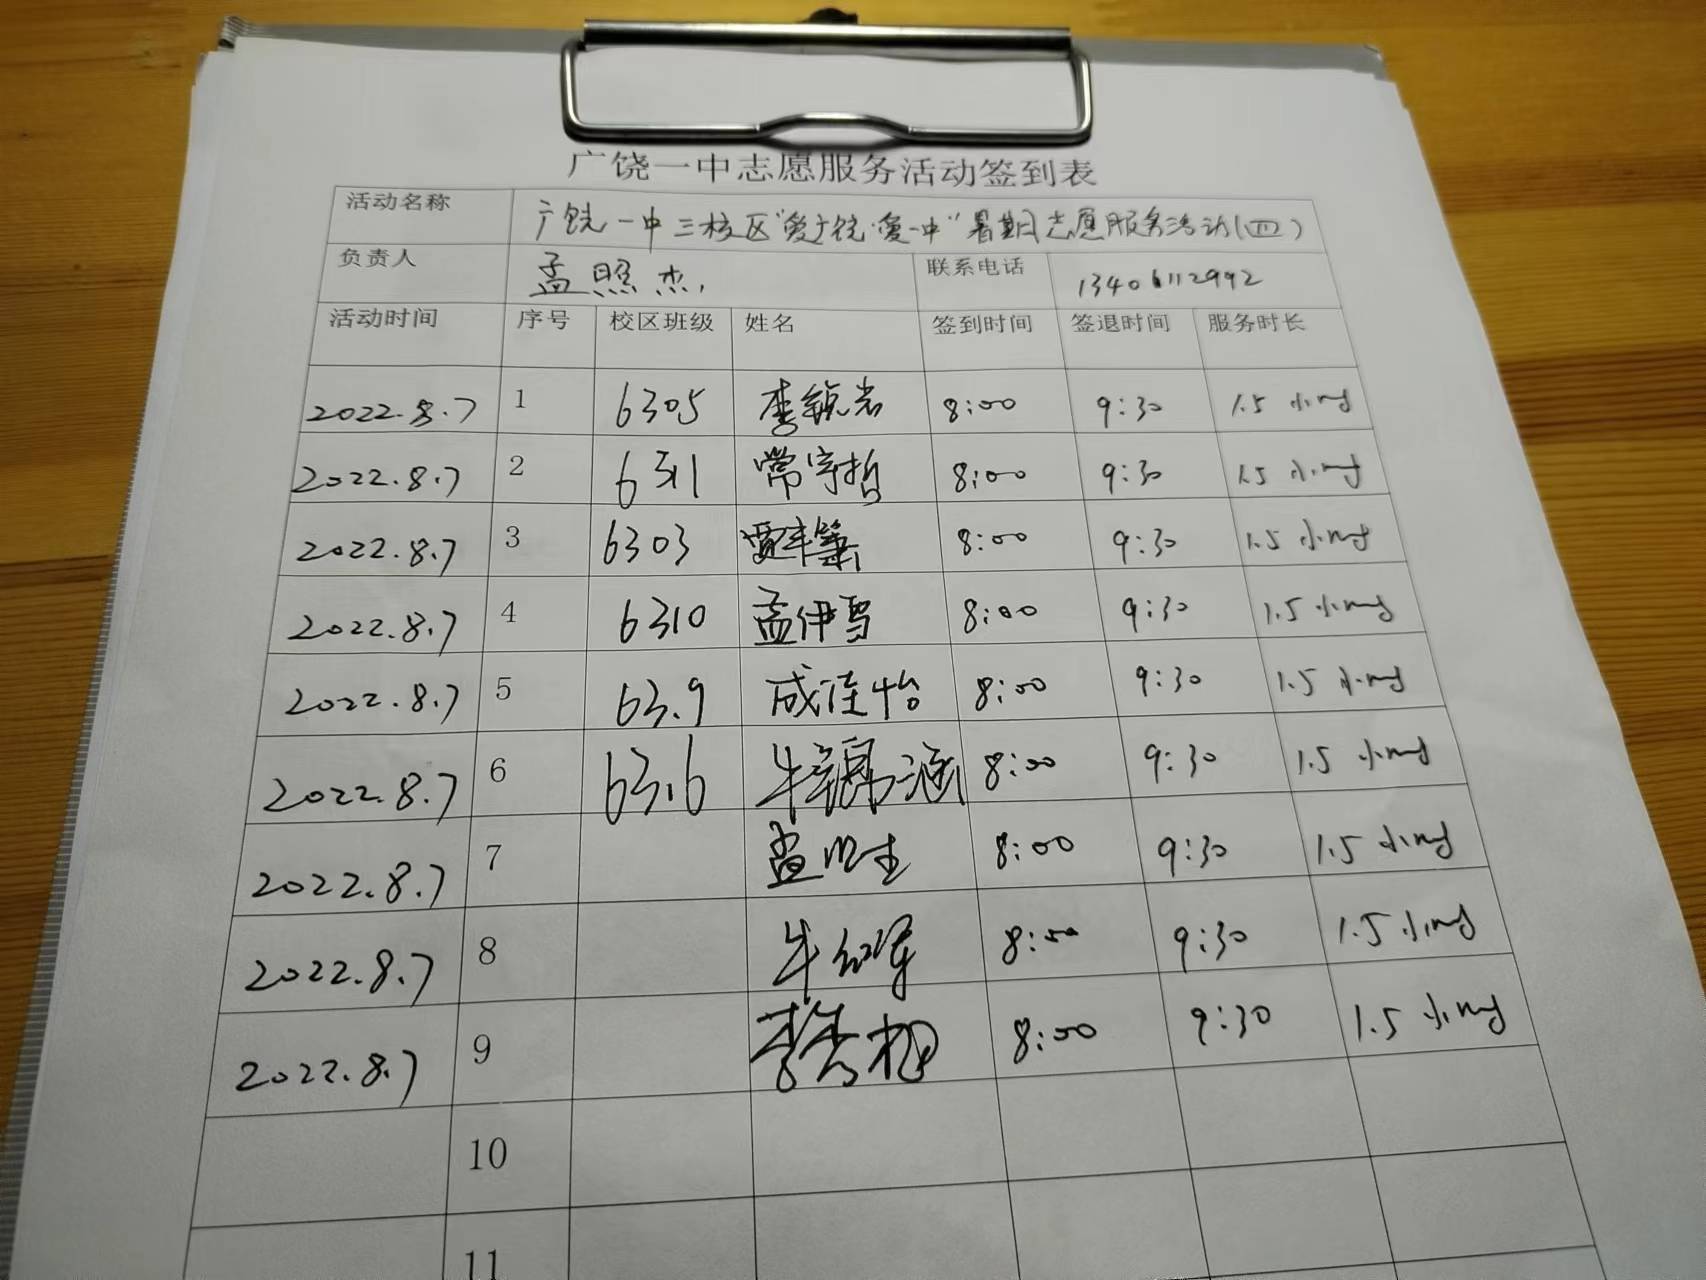 广饶一中志愿服务活动签到表
活动名称 广饶一中三校区“爱广饶·爱一中”暑期志愿服务活动(四)
负责人 孟照杰 联系电话 13406112992
活动时间 序号 校区班级 姓名 签到时间 签退时间 服务时长
2022.8.7 1 6305 李锐岩 8:00 9:30 1.5 小时
2022.8.7 2 6311 常守哲 8:00 9:30 1.5 小时
2022.8.7 3 6303 8:00 9:30 1.5 小时
2022.8.7 4 6310 孟伊雪 8:00 9:30 1.5 小时
2022.8.7 5 63.9 成佳怡 8:00 9:30 1.5 小时
2022.8.7 6 63.6 8:00 9:30 1.5 小时
2022.8.7 7 8:00 9:30 1.5 小时
2022.8.7 8 牛红军 8:00 9:30 1.5 小时
2022.8.7 9 8:00 9:30 1.5 小时
10
11